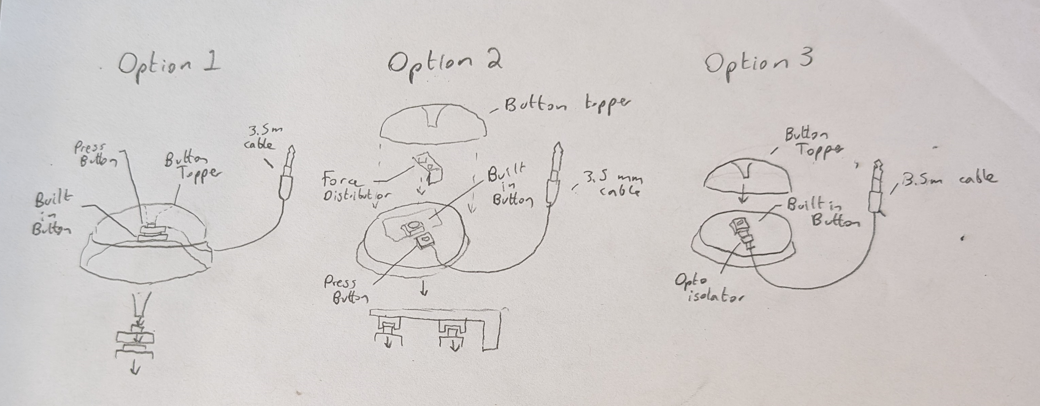 Option 1
Option 2
Option 3
Press
Button
Button
Topper
3.5m
cable
Built
in
Button
Button topper
Force
Distributior
Built
in
Button
3.5 mm
cable
Press
Button
Button
Topper
3.5m cable
Built in
Button
Opto
isolator